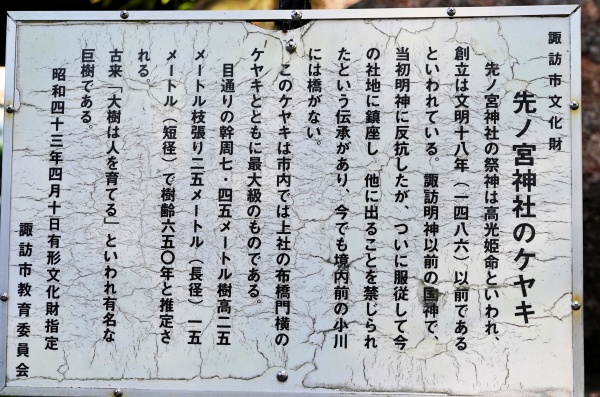 諏訪市文化財
先ノ宮神社のケヤキ
先ノ宮神社の祭神は高光姫命といわれ、
創立は文明十八年(一四八六)以前である
といわれている。諏訪明神以前の国神で、
当初明神に反抗したが、ついに服従して今
の社地に鎮座し、他に出ることを禁じられ
たという伝承があり、今でも境内前の小川
には橋がない。
このケヤキは市内では上社の布橋門横の
ケヤキとともに最大級のものである。
目通りの幹周七・四五メートル樹高二五
メートル枝張り二五メートル(長径)一五
メートル(短径)で樹齢六五〇年と推定さ
れる
古来「大樹は人を育てる」といわれ有名な
巨樹である。
昭和四十三年四月十日有形文化財指定
諏訪市教育委員会